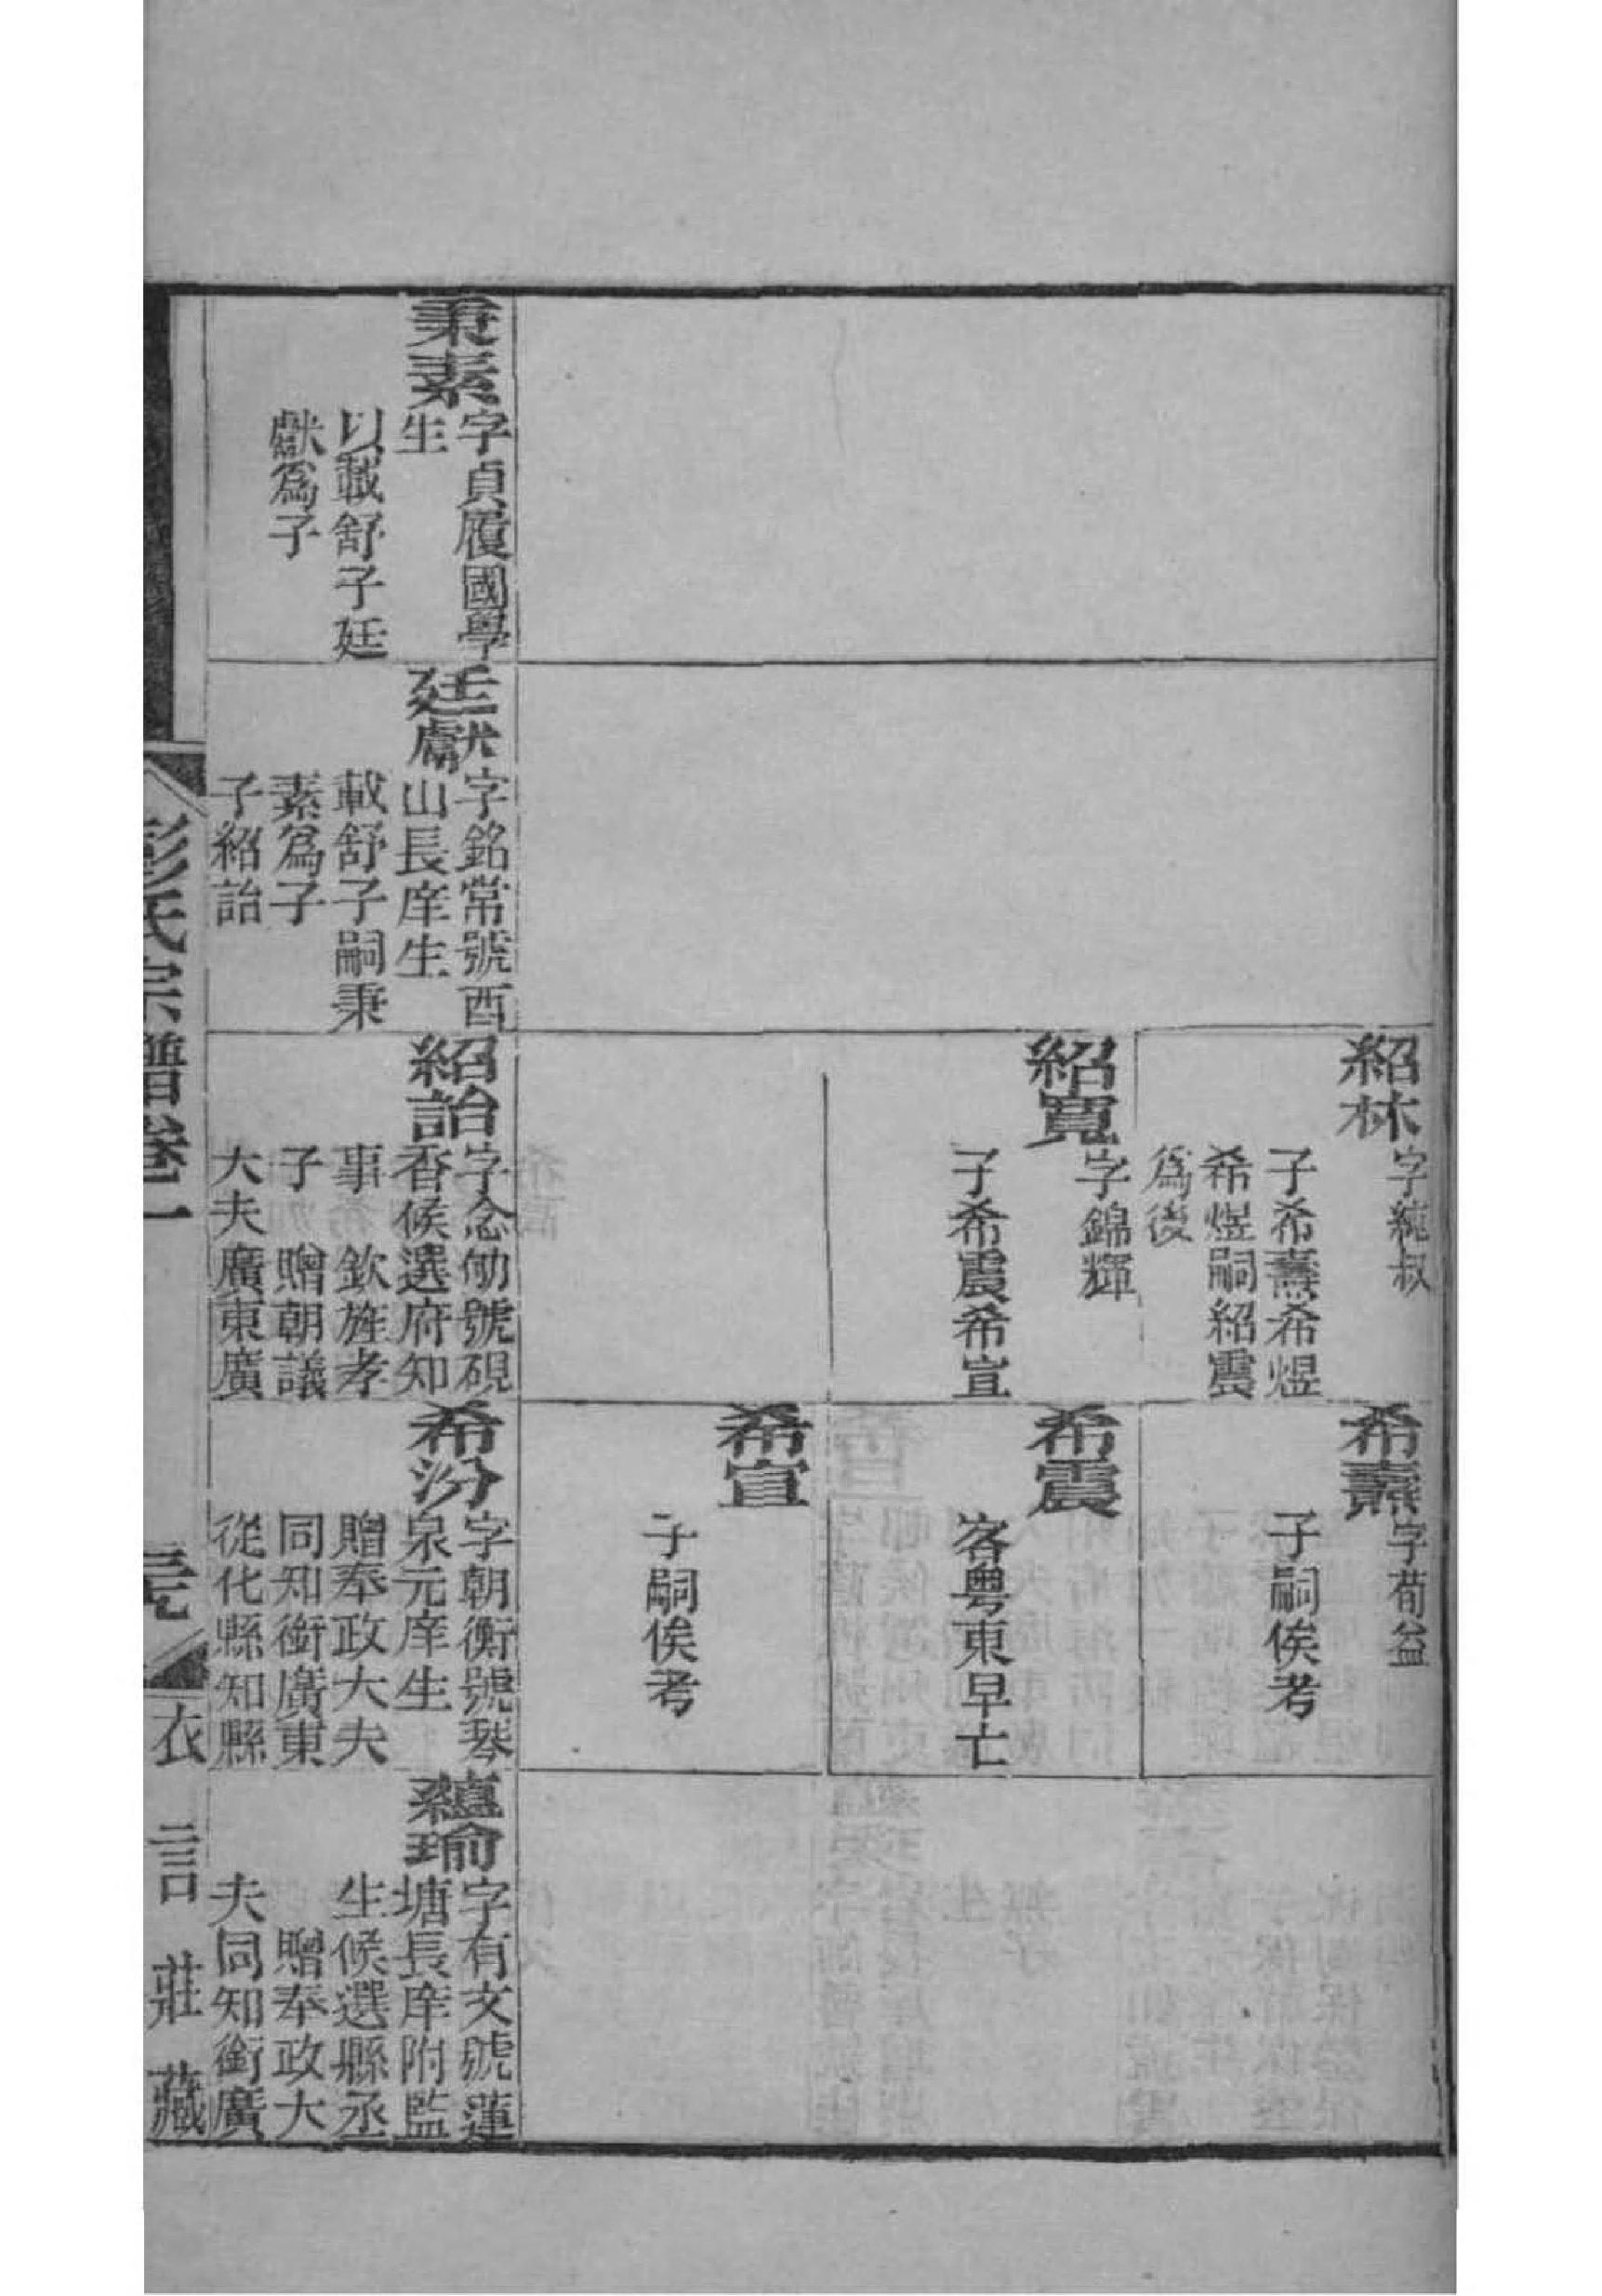 紹林
字純叔
子希燾希煜
希煜嗣紹震
爲後
紹寬
字錦輝
子希震希宣
希燾
字荀益
子嗣俟考
希震
客粤東早亡
希宣
子嗣俟考
秉素
字貞履國學
生
以載舒子廷
獻爲子
廷獻
字銘常號酉
山長庠生
載舒子嗣秉
素爲子
子紹詒
紹詒
字念劬號硯
香候選府知
事 欽旌孝
子 贈朝議
大夫廣東廣
希汾
字朝衡號琴
泉元庠生
贈奉政大夫
同知銜廣東
從化縣知縣
蘊瑜
字有文號蓮
塘長庠附監
生候選縣丞
贈奉政大
夫同知銜廣
彭氏宗譜卷一
衣言莊藏